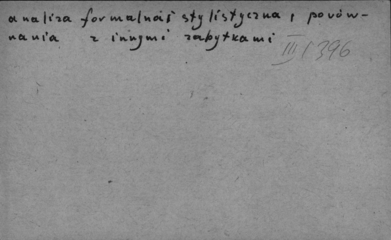 analiza formalnoś stylistyczna i porów-
nania z innymi zabytkami
III/396